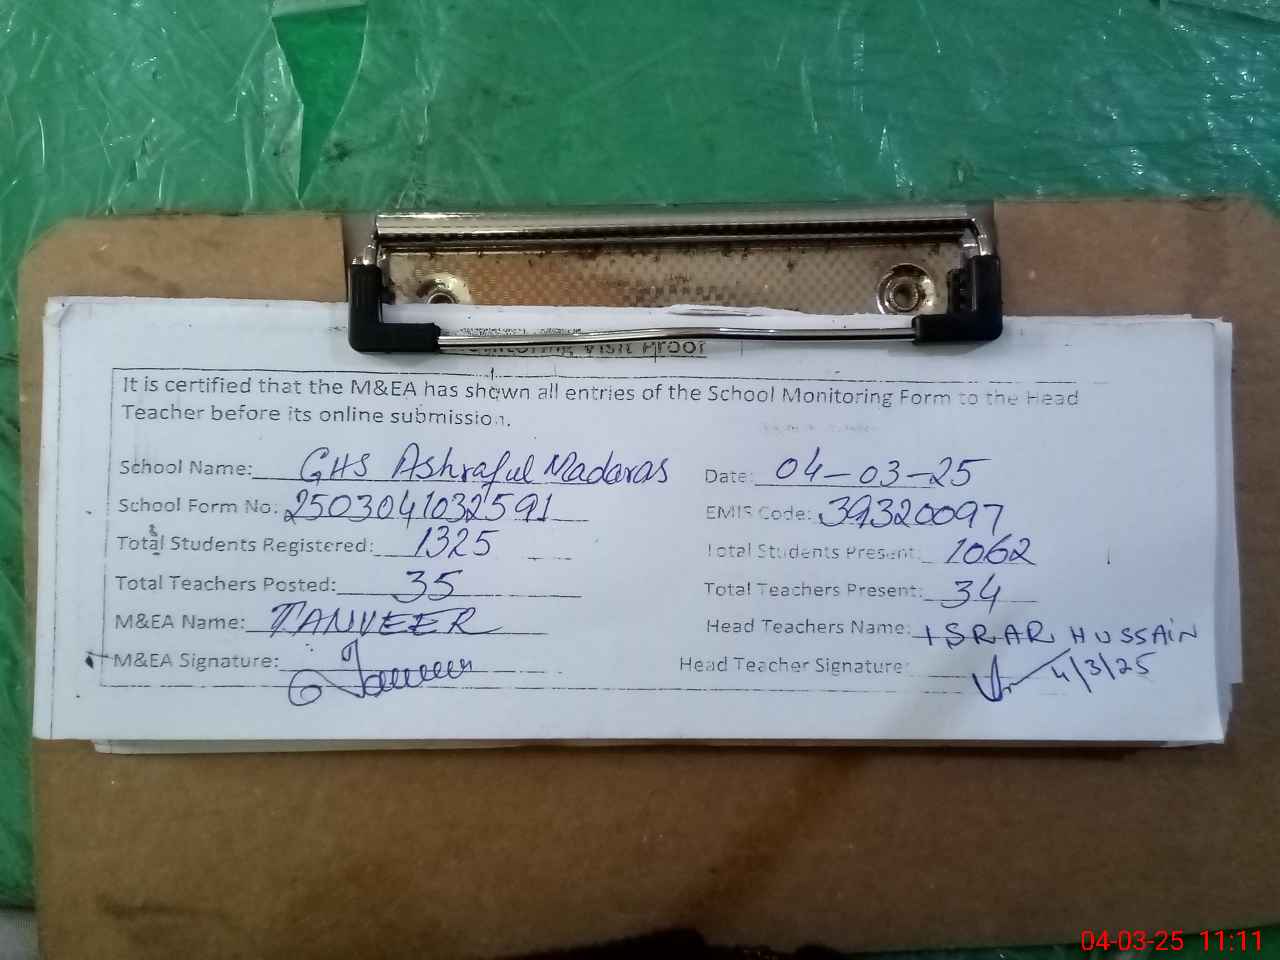 Monitoring Visit Proof
It is certified that the M&EA has shown all entries of the School Monitoring Form to the Head
Teacher before its online submission.
School Name: GHS Ashraful Madaras Date: 04-03-25
School Form No. 2503041032591 EMIS Code: 39320097
Total Students Registered: 1325 Total Students Present: 1062
Total Teachers Posted: 35 Total Teachers Present: 34
M&EA Name: TANVEER Head Teachers Name: ISRAR HUSSAIN
M&EA Signature: Head Teacher Signature: 4/3/25
04-03-25 11:11